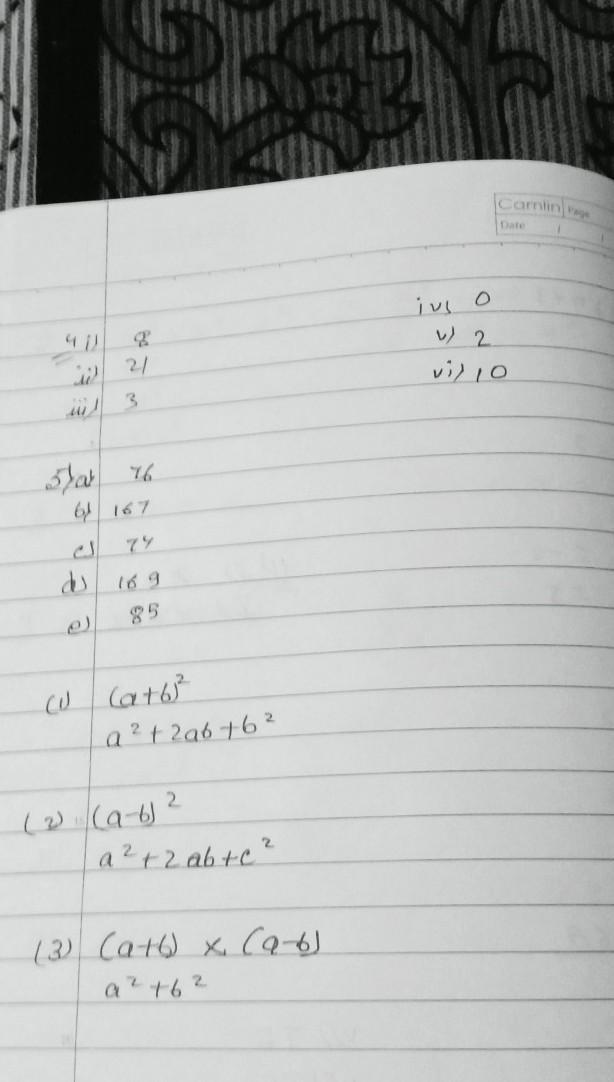 Camlin Page
Date / /
4 i) 8
ii) 21
iii) 3
iv) 0
v) 2
vi) 10
5) a) 76
b) 167
c) 74
d) 169
e) 85
(1) (a+b)²
a² + 2ab + b²
(2) (a-b)²
a² + 2ab + c²
(3) (a+b) × (a-b)
a² + b²